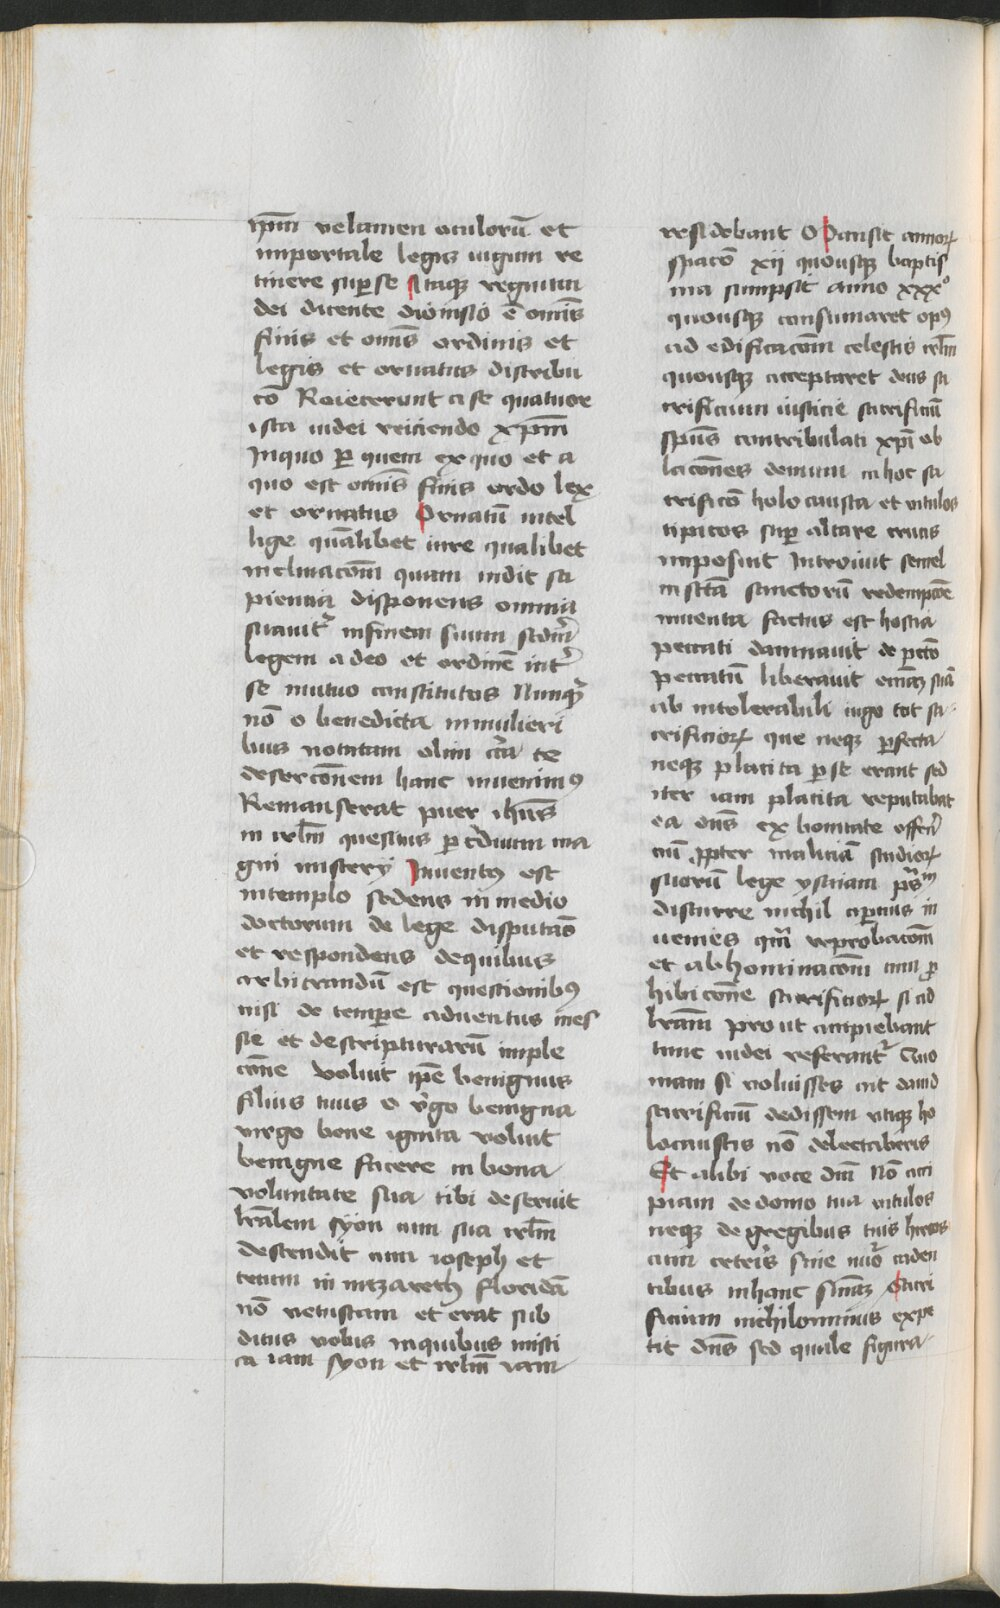 ip̄m velamen oculorū et
importale legis iugum re
tinere sup se Itaqꝫ regnum
dei dicente dionisio ē omīs
finis et omīs ordinis et
legis et ornatus distribu
cō Reiecerunt a se quatuor
ista iudei reiiciendo xp̄m
In quo per quem ex quo et a
quo est omīs finis ordo lex
et ornatus Ornatū intel
lige quālibet iure qualibet
inclinacōm quam indit sa
pientia disponens omnia
suauitʳ in finem suum scdm̄
legem a deo et ordinē intʳ
se mutuo constitutos Nunqʳ
nō o benedicta in mulieri
bus notatam olim cʳca te
desercōnem hanc inuenimꝰ
Remanserat puer ihūs
in irlm̄ quesitus per tʳduum ma
gni mistery Inuentꝰ est
in templo sedens in medio
doctorum de lege disputās
et respondens de quibus
arbitrandū est questionibꝰ
nisi de tempore aduentus mes
sie et de scripturarū imple
cōne voluit ipē benignus
filius tuus o vʳgo benigna
virgo bone ignita voluit
benigne facere in bona
voluntate sua tibi deseruit
trālem syon cum sua irlm̄
descendit cum ioseph et
tecum in nazareth floridā
nō vetustam et erat sub
ditus vobis in quibus misti
ca iam syon et irlm̄ vam
residebant O Pansit annoꝝ
spacō xij quousqꝫ baptis
ma sumpsit anno xxx°
quousqꝫ consumaret opꝰ
ad edificacōm celestis irlm̄
quousqꝫ acceptaret deus sa
crificium iusticie sacrificiū
spūs contribulati xpī ob
lacōnes demum in hoc sa
crificō holocausta et vitulos
tipicos super altare crucis
imposuit Introiuit semel
in scta sanctorū redempcōe
inuenta factus est hostia
peccati damnauit de pctō
peccatū liberauit suā
ab intolerabili iugo tot sa
crificioꝝ que neqꝫ perfecta
neqꝫ placita per se erant sed
iter iam placita reputabat
ea dn̄s ex bonitate
cū propter maliciā studioꝝ
suorū lege ysaiam
discurre nichil apcius in
uenies qm̄ reprobacōm
et abhominacōm cum pro
hibicōne sacrificioꝝ si ad
tram̄ prout capiebant
tunc iudei referantʳ Quo
niam si voluisses ait dauid
sacrificiū dedissem vtiqꝫ ho
locaustis nō delectaberis
Et alibi voce dnī Nō acci
piam de domo tua vitulos
neqꝫ de gregibus tuis hircos
cum ceteris sine nūo caden
tibus in hanc Sacri
ficium nichilominus expe
tit dn̄s sed quale figura